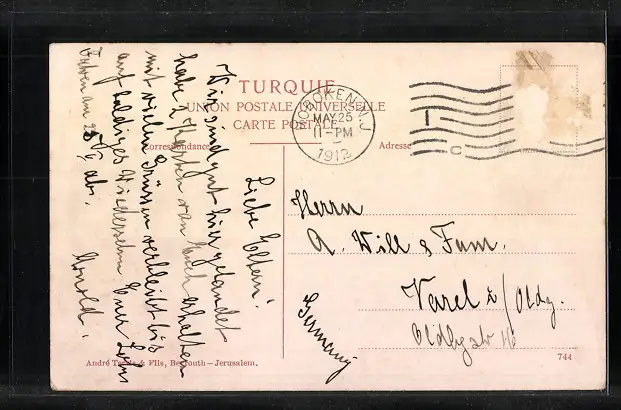 TURQUIE
UNION POSTALE UNIVERSELLE
CARTE POSTALE
Correspondance
Adresse
HOBOKEN, N.J.
MAY 25
11-PM
1912
Liebe Eltern!
Wir sind gut hier gelandet
habe 2 Karten von Euch erhalten
mit vielen Grüssen verbleibt bis
auf baldiges Wiedersehn Euer Sohn
Fahren am 28/5 ab. Arnold.
Herrn
A. Will & Fam.
Varel i/Oldbg.
Oldbgstr
Germany
André Terzis & Fils, Beyrouth — Jerusalem.
744